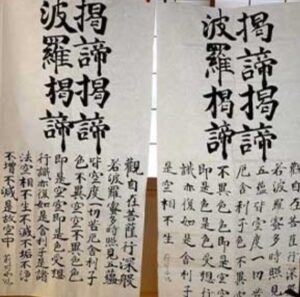 揭諦揭諦
波羅揭諦
觀自在菩薩行深
般若波羅蜜多時照見
五蘊皆空度一切苦
厄舍利子色不異
識亦復如是舍利子
是空相不生
揭諦揭諦
波羅揭諦
觀自在菩薩行深般
若波羅蜜時照見五蘊
皆空度一切苦厄舍利子
色不異空空不異色色
即是空空即是色受想
行識亦復如是舍利子是諸
法空相不生不滅不垢不淨
不增不減是故空中